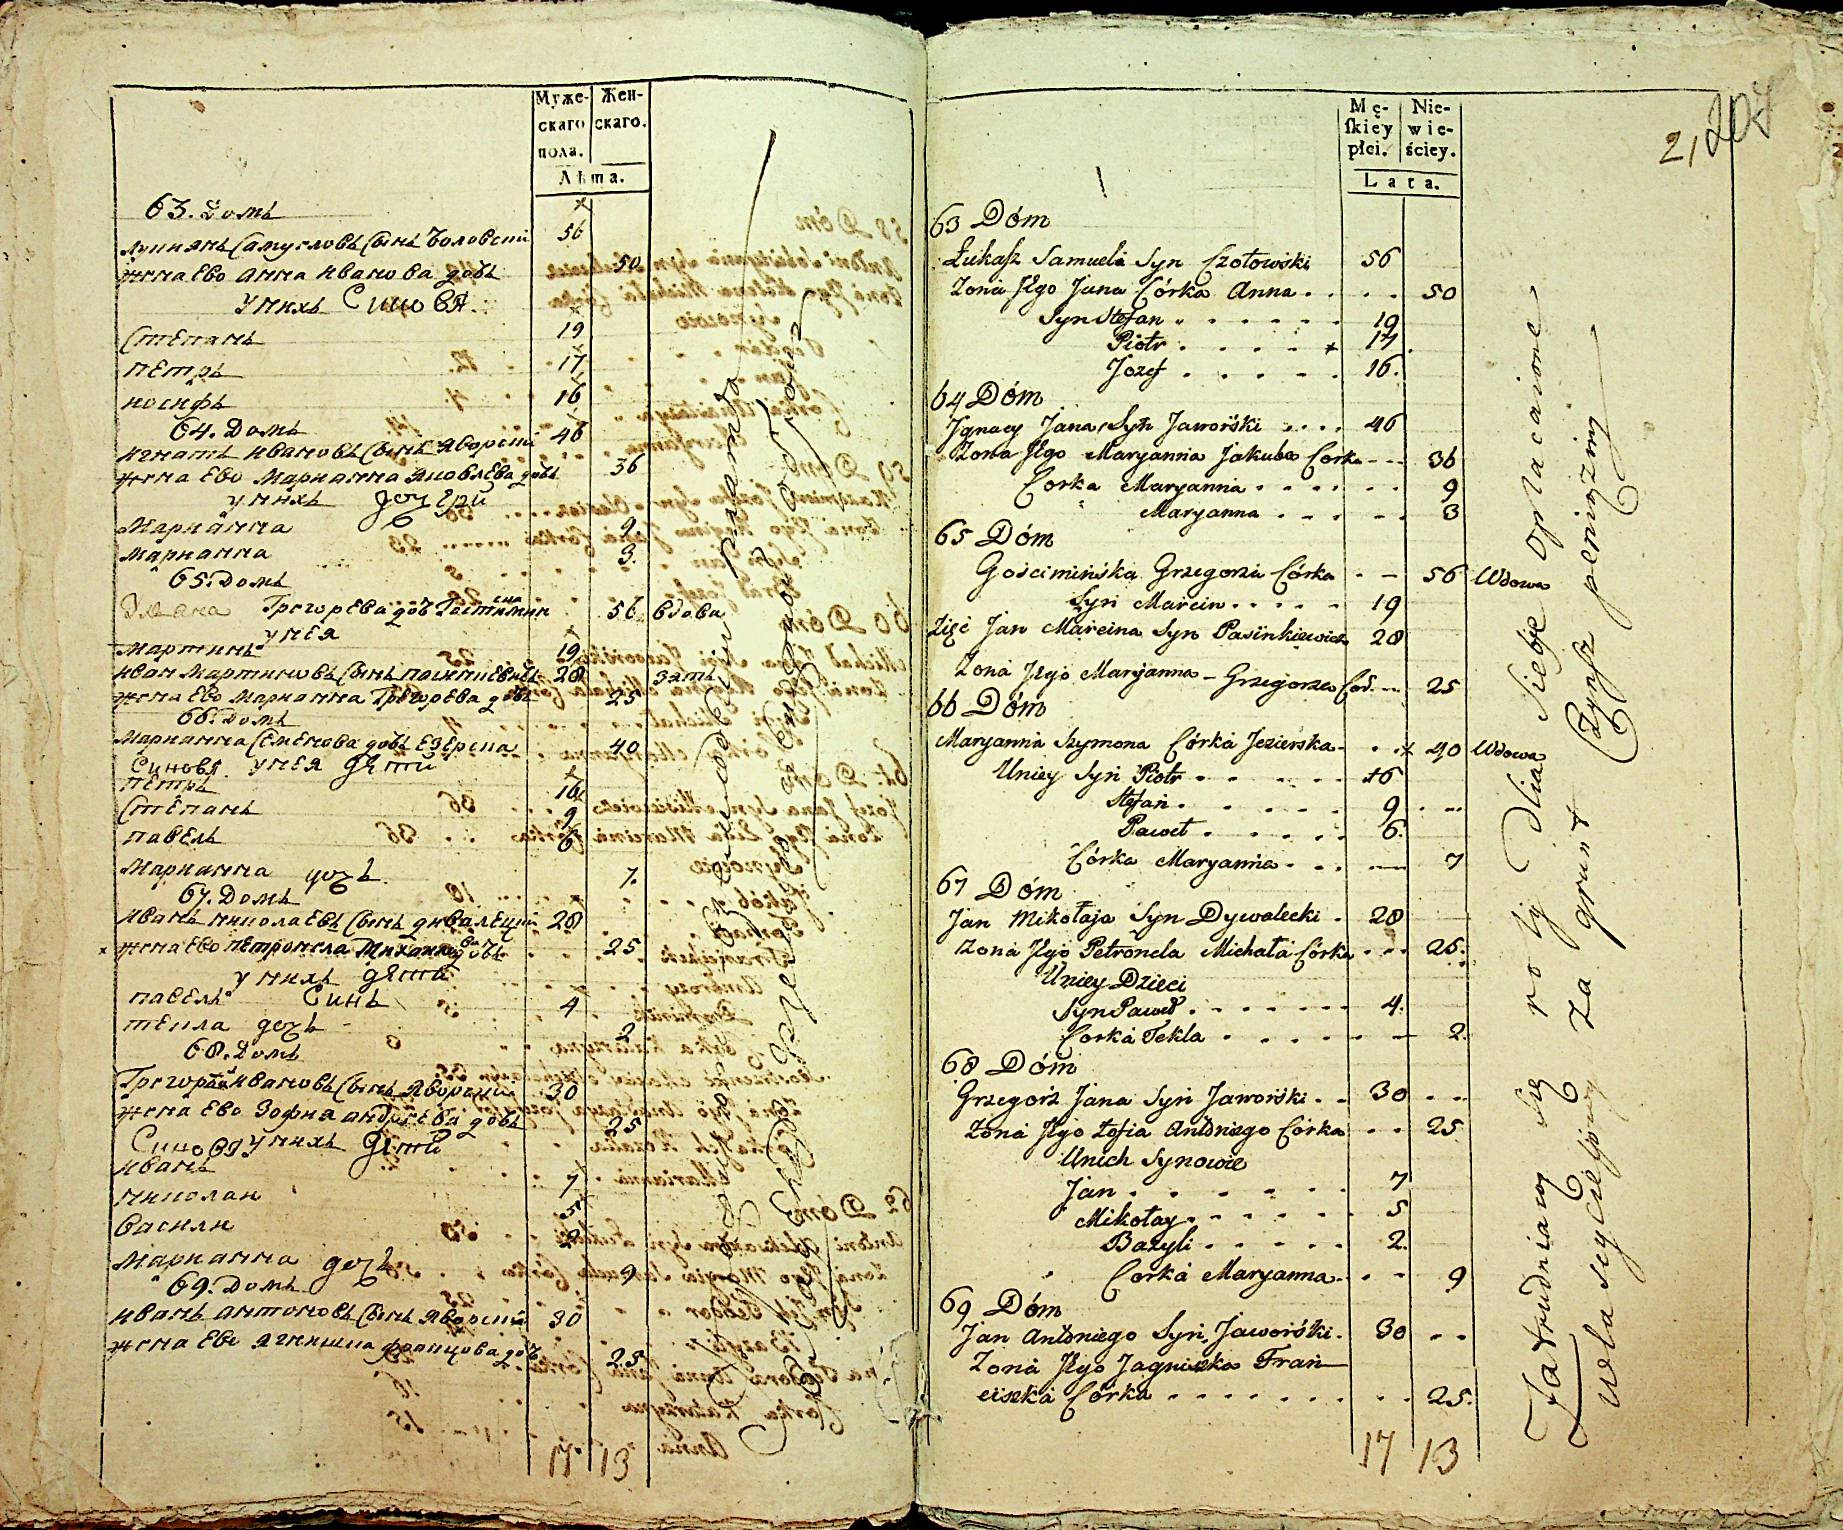 Муже- Жен-
скаго скаго.
пола.
Лѣта.
63. Домъ
Лукиянъ Самусловъ Сынъ Чоловскій 56
жена Ево Анна Иванова дочь 50
У нихъ Синовя
Степанъ 19
Петръ 17
Иосифъ 16
64. Домъ
Игнатъ Ивановъ Сынъ Яворскій 46
жена Ево Марианна Яковлева дочь 36
У нихъ дочери
Марианна 9
Марианна 3.
65. Домъ
Григорева дочь 56 вдова
У нея
Мартинъ 19
Иван Мартиновъ Сынъ 28 зять
жена Ево Марианна Григорева дочь 25
66. Домъ
Марианна Семенова дочь Езерска 40
Синовя У нея дети
Петръ 16
Степанъ 9
Павелъ 6
Марианна дочь 7.
67. Домъ
Иванъ Николаевъ Сынъ Дивалецкій 28
жена Ево Петронела Михайлова дочь 25
У нихъ дети
Павелъ Синъ 4
Текла дочь 2
68. Домъ
Григорей Ивановъ Сынъ Яворскій 30
жена Ево Зофиа Андреева дочь 25
Синовя У нихъ дети
Иванъ 7
Николаи 5
Василии 2
Марианна дочь 9
69. Домъ
Иванъ Антоновъ Сынъ Яворскій 30
жена Ево Ягнишка Францова дочь 25.
17 13
Mę- Nie-
ſkiey wie-
płci. ściey.
Lata.
21
207
63 Dóm
Łukasz Samuela Syn Czołowski 56
Zona Jego Jana Córka Anna 50
Syn Stefan 19
Piotr 17
Jozef 16.
64 Dóm
Jgnacy Jana Syn Jaworski 46
Zona Jego Maryanna Jakuba Corka 36
Corka Maryanna 9
Maryanna 3
65 Dóm
Gościmińska Grzegorza Córka 56 Wdowa
Syn Marcin 19
Zięć Jan Marcina Syn Pasinkiewicz 28
Zona Jego Maryanna Grzegorza Cor. 25
66 Dóm
Maryanna Szymona Córka Jezierska 40 Wdowa
Uniey Syn Piotr 16
Stefan 9
Paweł 6.
Córka Maryanna 7
67 Dóm
Jan Mikołaja Syn Dywalecki 28
Zona Jego Petronela Michała Córka 25.
Uniey Dzieci
Syn Paweł 4.
Corka Tekla 2.
68 Dóm
Grzegorż Jana Syn Jaworski 30
Zona Jego Zofia Antoniego Córka 25
Unich Synowie
Jan 7
Mikołay 5
Bazyli 2.
Corka Maryanna 9
69 Dóm
Jan Antoniego Syn Jaworski 30
Zona Jego Jagniszka Fran
ciszka Córka 25.
17 13
Zatrudniaią się ro ią dlia Siebje opłacaione
własciycielowy za grunt Czynsz pieniężny